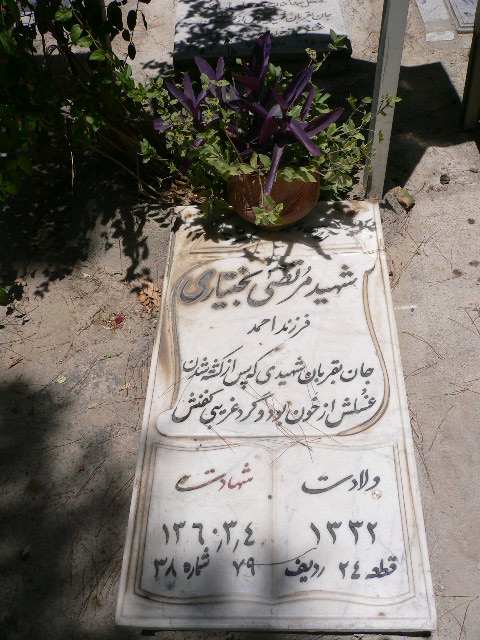 شهید مرتضی بختیاری
فرزند احمد
جان بقربان شهیدی که پس از کشته شدن
غسلش از خون بود و گرد غریبی کفنش
ولادت شهادت
۱۳۳۲ ۱۳۶۰،۳،۴
قطعه ۲۴ ردیف ۷۹ شماره ۳۸